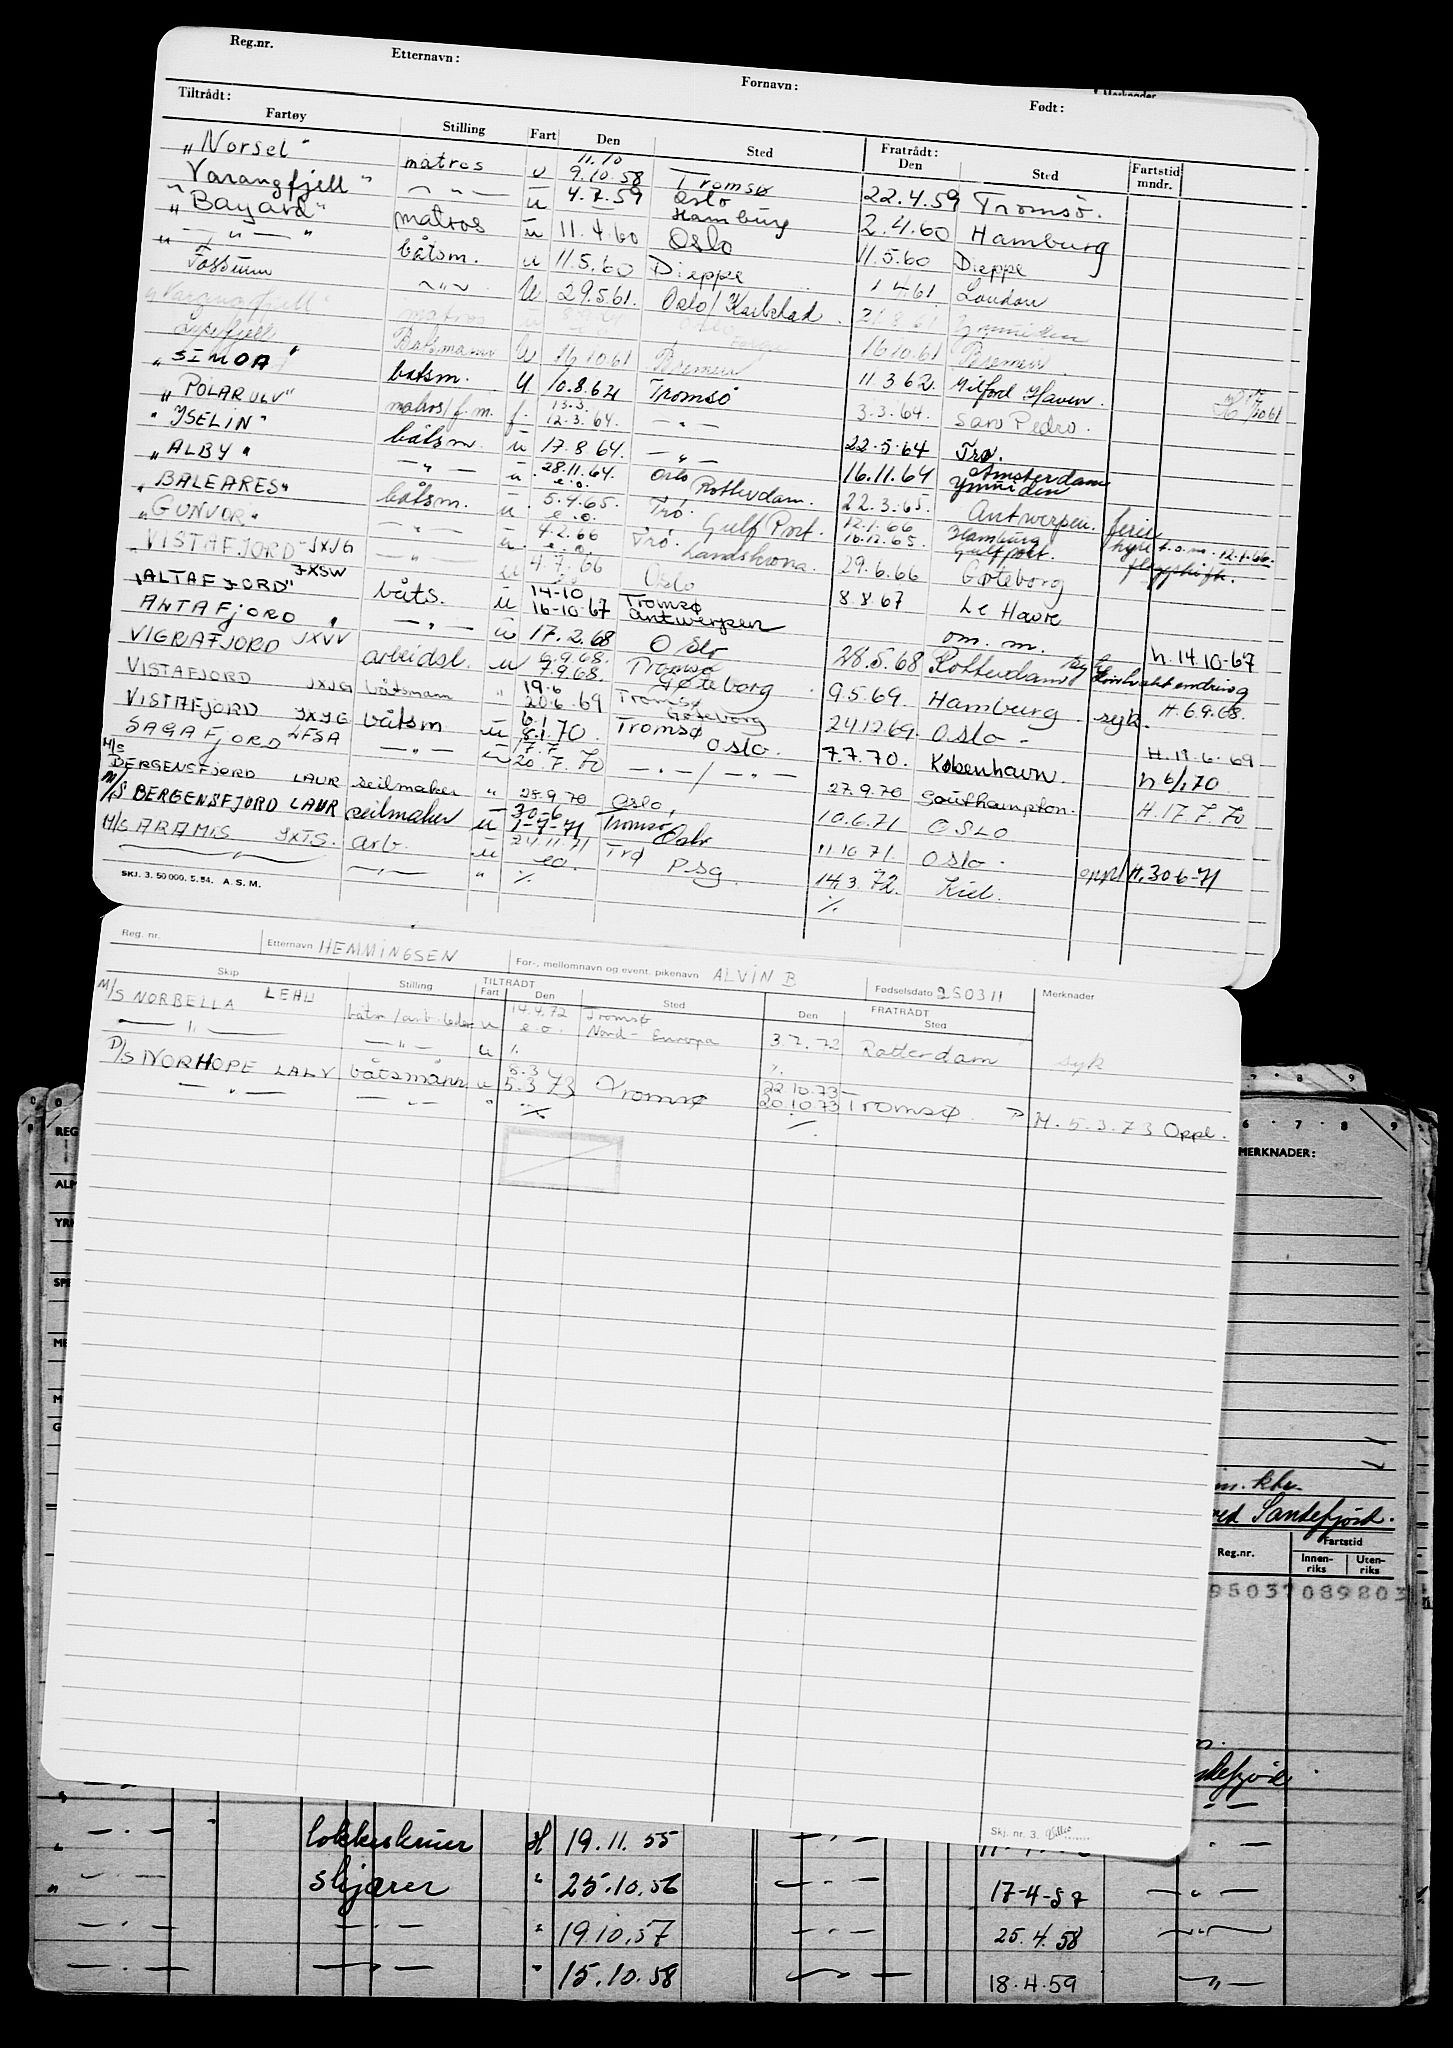 Reg.nr. Etternavn: Fornavn: Født:
Tiltrådt: Fratrådt:
Fartøy Stilling Fart Den Sted Den Sted Fartstid mndr.
"Norsel" matros u 11.10 9.10.58 Tromsø 22.4.59 Tromsø.
"Varangfjell" — " — u 4.7.59 Oslo Hamburg 2.4.60 Hamburg
"Bayard" matros u 11.4.60 Oslo 11.5.60 Dieppe
— " — båtsm. u 11.5.60 Dieppe 1.4.61 London
"Fossum — " — u 29.5.61. Oslo/Karlstad. 21.8.61 Ymuiden
"Varangfjell" matros u Oslo 16.10.61 Bremen.
Lysefjell Båtsmann u 16.10.61 Bremen 11.3.62. Milford Haven.
"SIMOA" båtsm. u 10.8.62 Tromsø 3.3.64. San Pedro.
"POLARULV" matros/f.m. f. 13.3. 12.3.64. — " — 22.5.64 Trø.
"YSELIN" båtsm. u 17.8.64. — " — 16.11.64 Amsterdam Ymuiden
"ALBY" — " — u. 28.11.64. e.o. Oslo Rotterdam. 22.3.65. Antwerpen. ferie
"BALEARES" båtsm. u. 5.4.65. e.o. Trø. Gulf Port. 12.1.66 10.12.65. Hamburg Gulfport. hyre t.o.m. 12.1.66. flaggskift.
"GUNVOR" — " — u. 4.2.66 e.o. Trø. Landskrona. 29.6.66 Gøteborg
"VISTAFJORD" JXJG — " — u 4.7.66 Oslo 8.8.67 Le Havre
"ALTAFJORD" JXSW båts. u 14-10 16-10-67 Tromsø Antwerpen om. m. h. 14.10-67
ANTAFJORD " — " — u 17.2.68 Oslo 28.5.68 Rotterdam
VIGRAFJORD JXVV arbeidsl. u 6.9.68. 7.9.68. Tromsø Gøteborg 9.5.69. Hamburg syk. H. 6.9.68.
VISTAFJORD JXJG båtsmann " 19.6 20.6.69 Tromsø Gøteborg 24.12.69. Oslo - H. 19.6.69
VISTAFJORD JXJG båtsm u 6.1.70. 8.1. Tromsø Oslo. 7.7.70. København. h 6/1.70
SAGAFJORD LFSA — " — u 17.7. 20.7.70 — " — / — " — 27.9.70 Southampton. H. 17.7.70
M/S BERGENSFJORD LAUR seilmaker " 28.9.70 Oslo, 10.6.71 OSLO
M/S BERGENSFJORD LAUR seilmaker u 30.6 1-7-71 Tromsø, Oslo 11.10.71. Oslo. oppl H. 30-6-71
M/S ARAMIS JXTS. arb. u 24.11.71 eo. Trø Psg. 14.3.72. Kiel.
— " — — " — " ./. ./.
SKJ. 3. 50 000. 5.54. A.S.M.
Reg. nr. Etternavn HEMMINGSEN For-, mellomnavn og event. pikenavn ALVIN B Fødselsdato 250311 Merknader
TILTRÅDT FRATRÅDT
Skip Stilling Fart Den Sted Den Sted
M/S NORBELLA LEHU båtsm/arb.leder u 14.4.72 e.o. Tromsø Nord-Europa 3.7.72 Rotterdam syk
— " — — " — u ./. ./.
D/S NORHOPE LALV båtsmann u 5.3 5.3.73 Tromsø 22.10.73 — 20.10.73 Tromsø M. 5.3.73 Oppl.
— " — — " — " ./. ./.
Skj. nr. 3.
6 · 7 · 8 9
MERKNADER:
ved Sandefjord.
Reg.nr. Fartstid
Innen-riks Uten-riks
95037089803
— . —
— . — lokkeskruer H 19.11.55 — . — — . —
— . — skjærer " 25.10.56 — . — 17-4-57 — " —
— . — — . — " 19.10.57 — . — 25.4.58 — " —
— . — — . — " 15.10.58 — . — 18.4.59 — " —